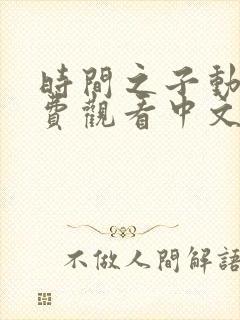 時間之子動
費觀看中文
不做人間解語